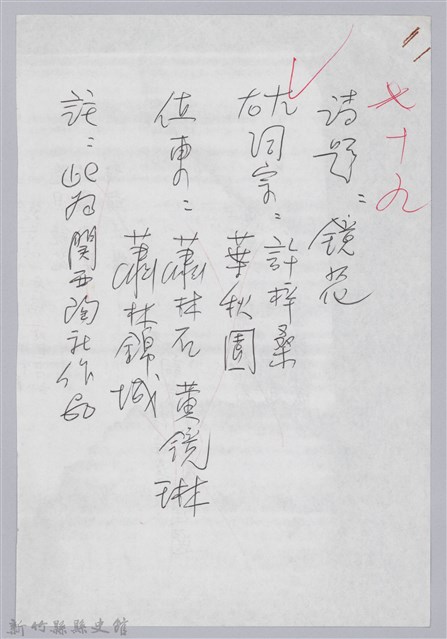 七十九
诗题：鏡花
左右词宗：許梓桑
葉秋園
值東：蕭林石 黄鏡琳
蕭林錦城
註：此为関西陶社作品
新竹縣縣史館